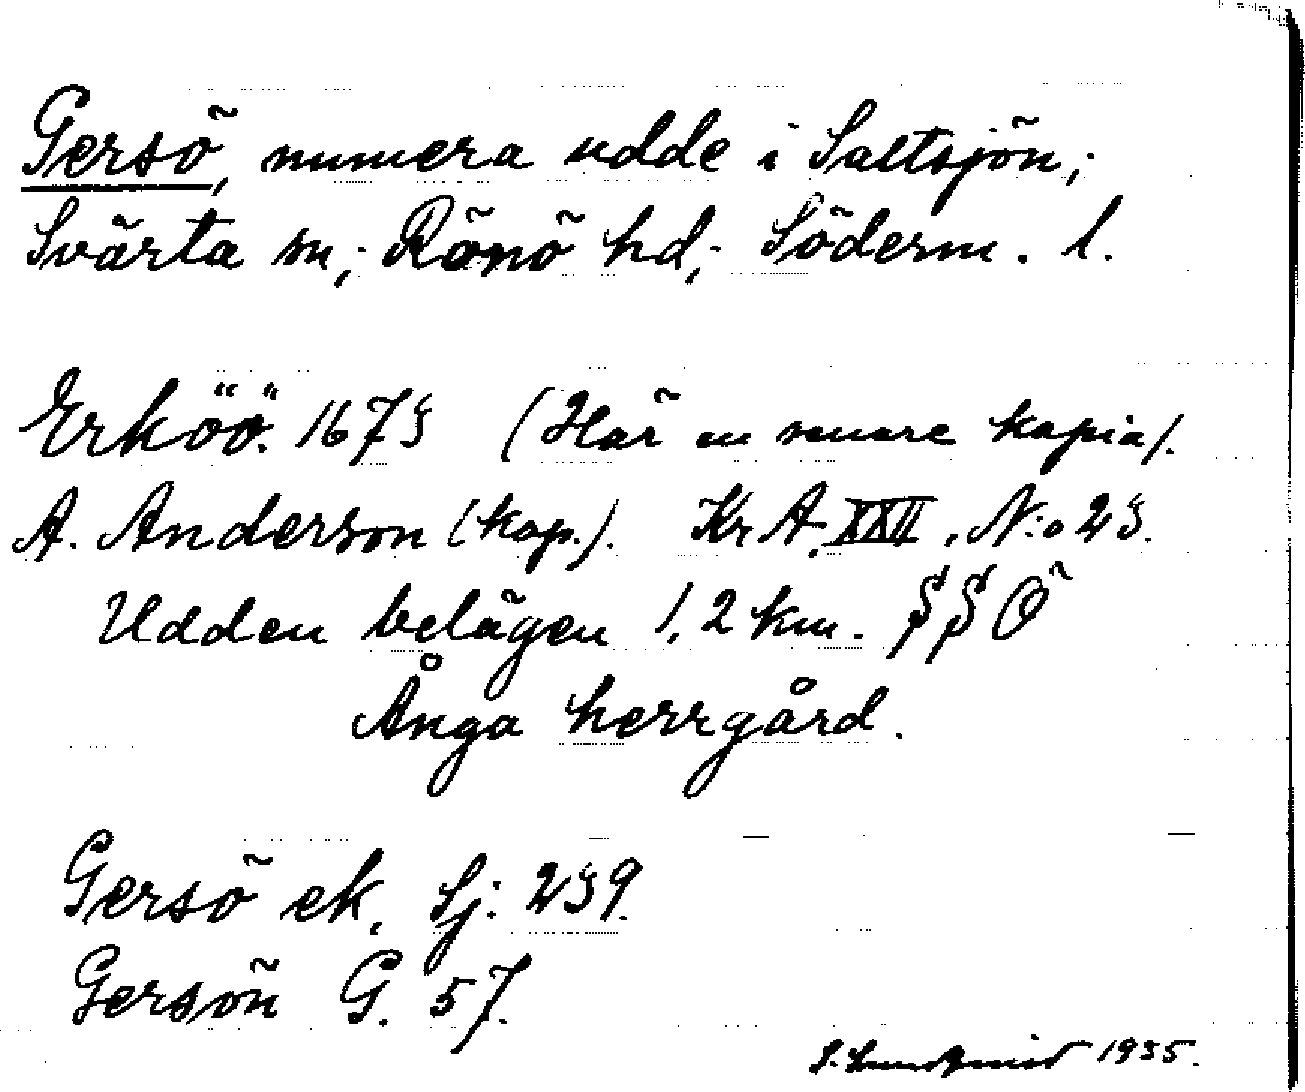 Gersö, numera udde i Saltsjön;
Svärta sn; Rönö hd; Söderm. l.
Erköö. 1673 (Här en senare kopia).
A. Anderson (kop.). Kr A. XXII. N:o 23.
Udden belägen 1,2 km. SSÖ
Ånga herrgård.
Gersö ek. Sj. 239.
Gersön G. 57.
1935.